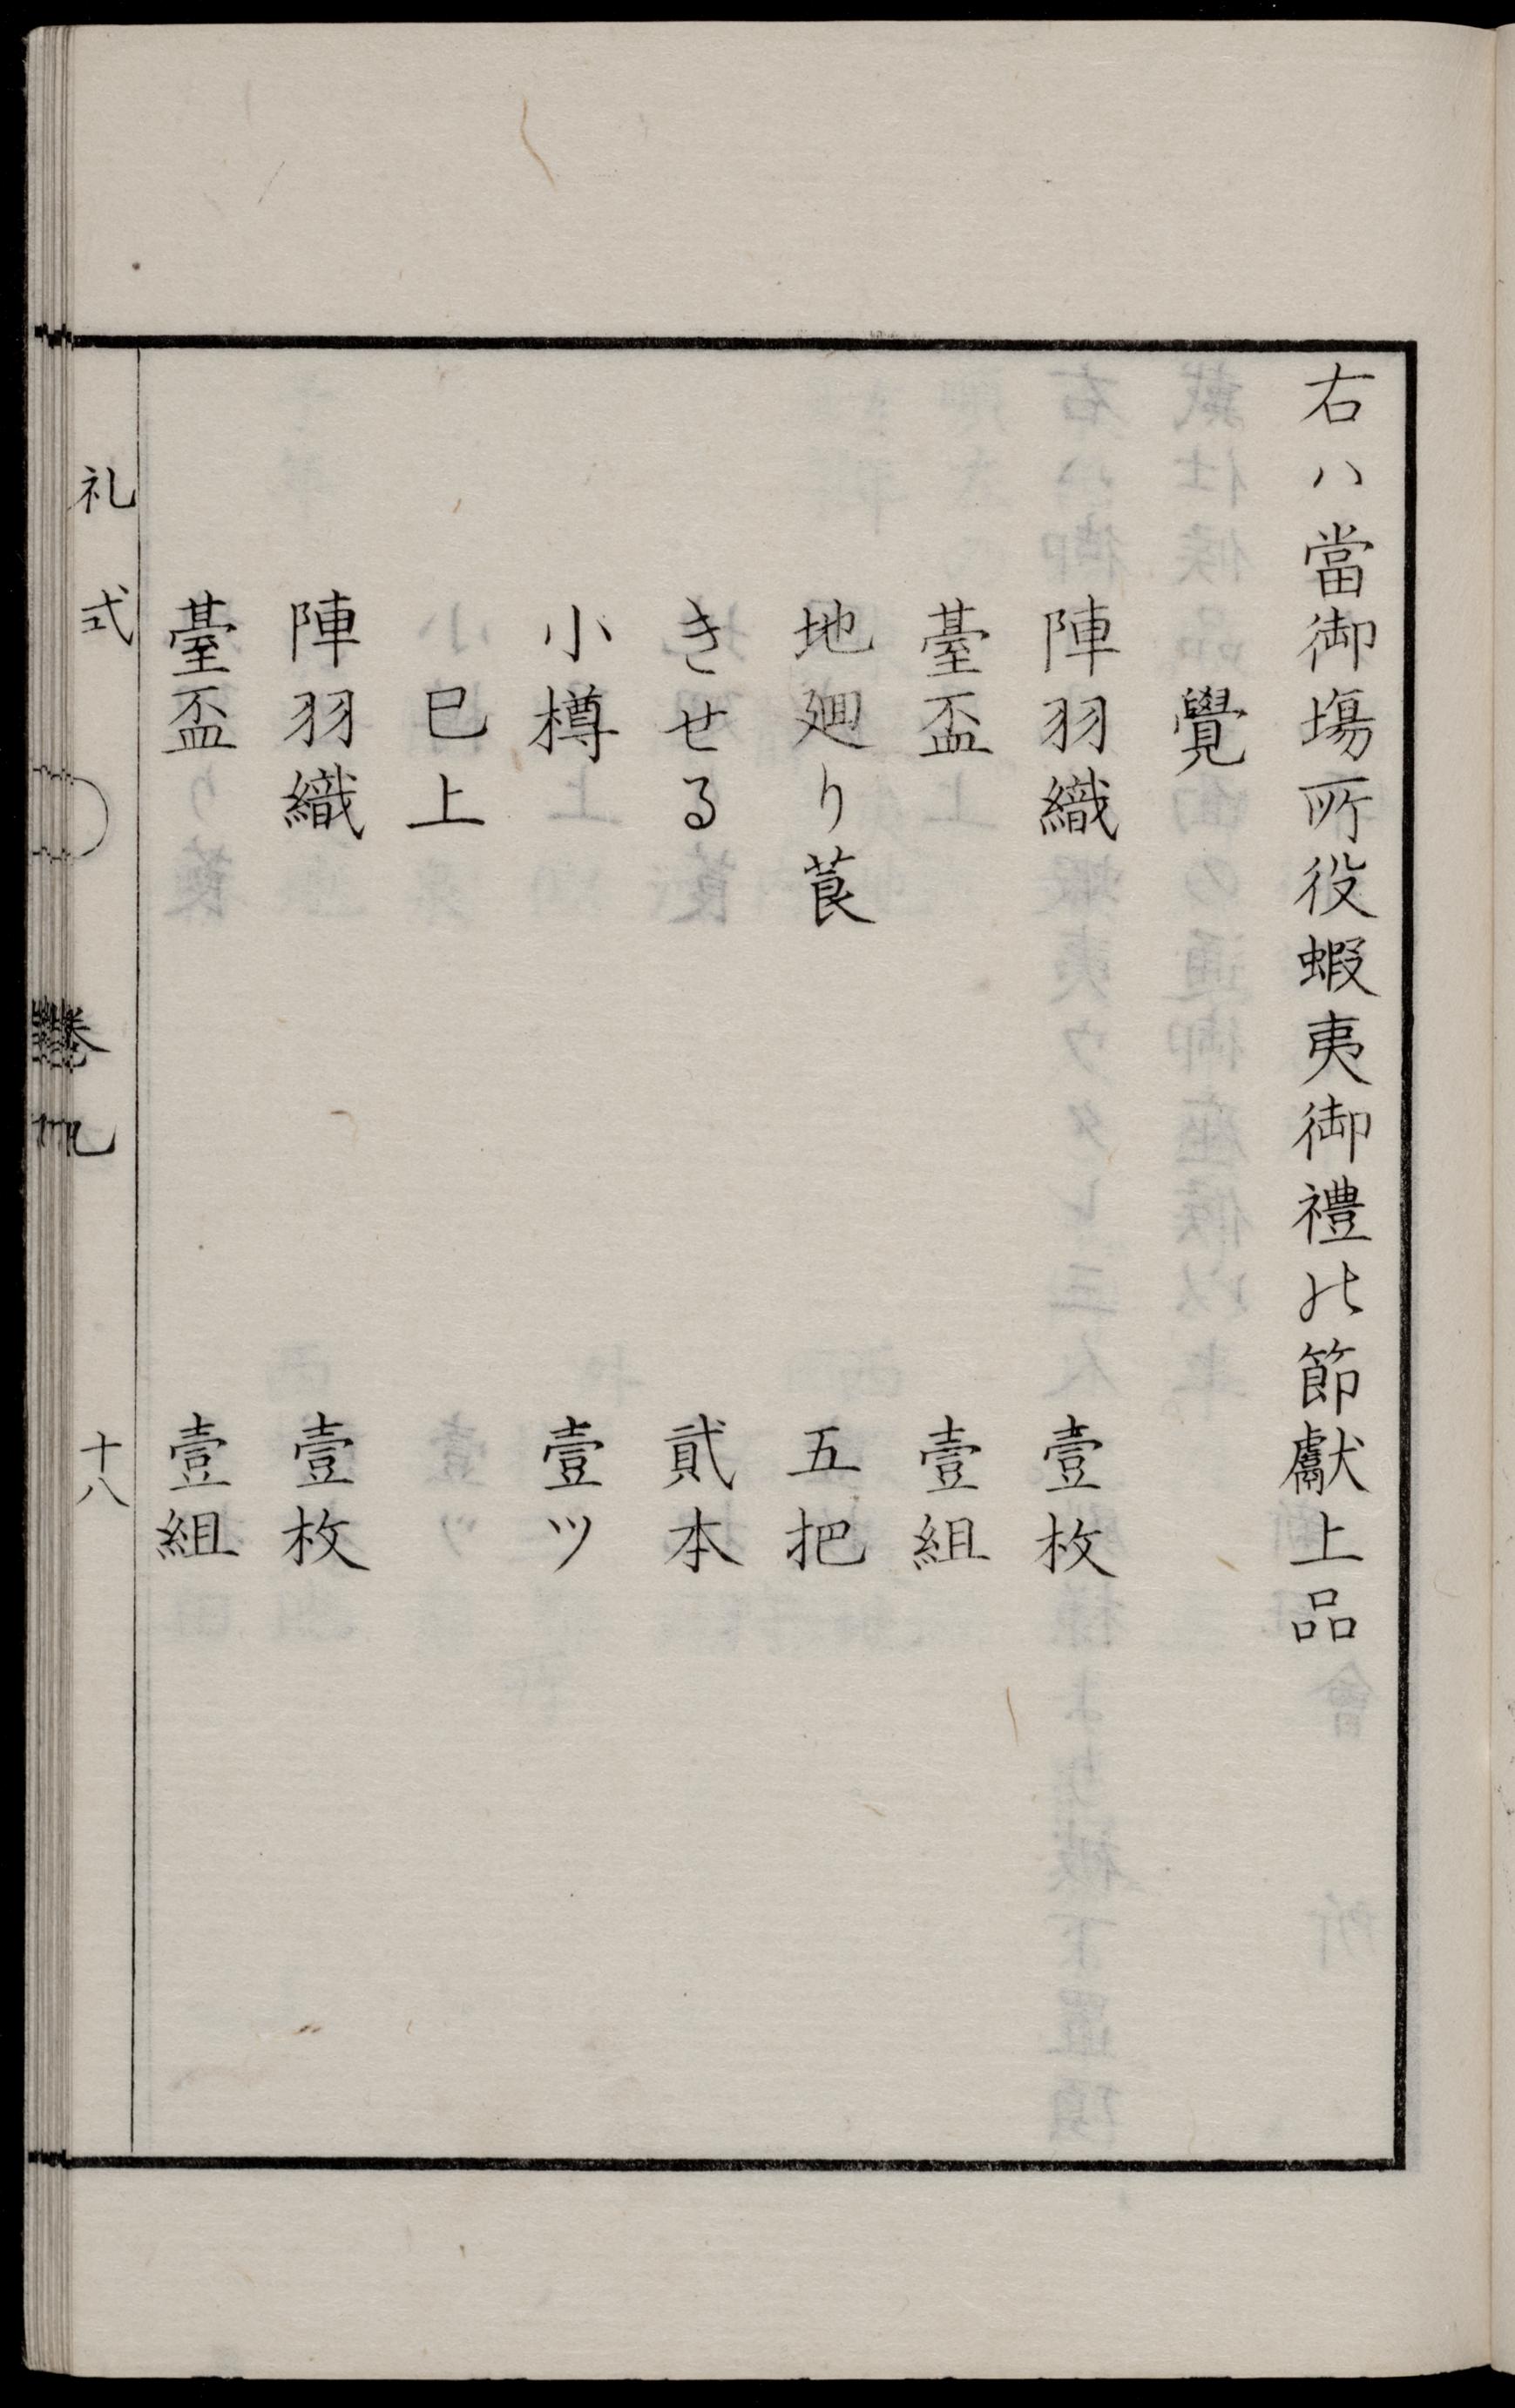 右ハ當御塲所役蝦夷御禮の節獻上品
覺
陣羽織 壹枚
臺盃 壹組
地廻り莨 五把
きせる 貳本
小樽 壹ツ
已上
陣羽織 壹枚
臺盃 壹組
礼式 卷 十八